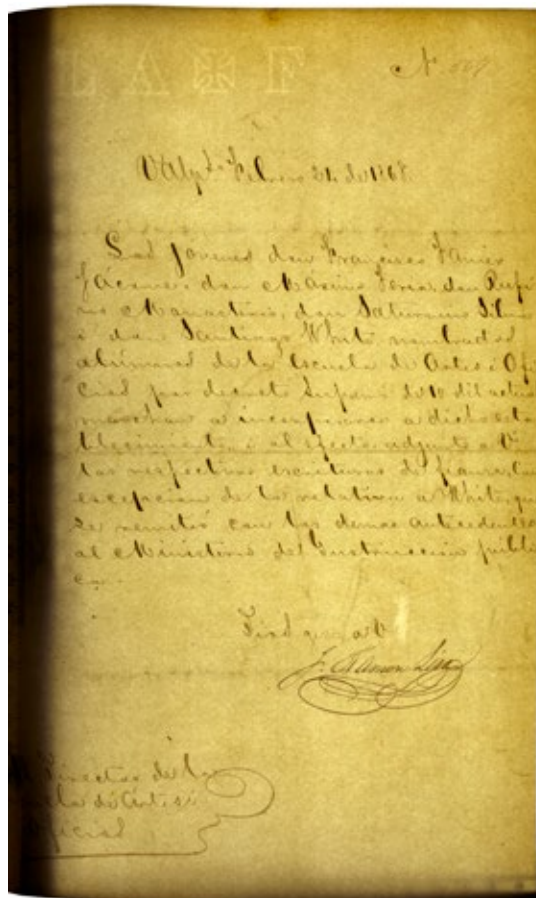 LA F
N. 
Valpso. Febrero 21 de 1868.
Los jovenes don Francisco Javier
Jácome, don Maximo Feria, don Rufi
no Monasterio, don Saturnino Silva
i don Santiago White nombrados
alumnos de la Escuela de Artes i Ofi
cios por decreto Supremo de 10 del actual
marchan a incorporarse a dicho esta
blecimiento i al efecto adjunto a V.
las respectivas escrituras de fianza, con
escepcion de la relativa a White, que
se remitió con los demas antecedentes
al Ministerio de Instruccion públi
ca.
Dios gue. a V.
J. Ramon Lira
Director de la
Escuela de Artes i
Oficios